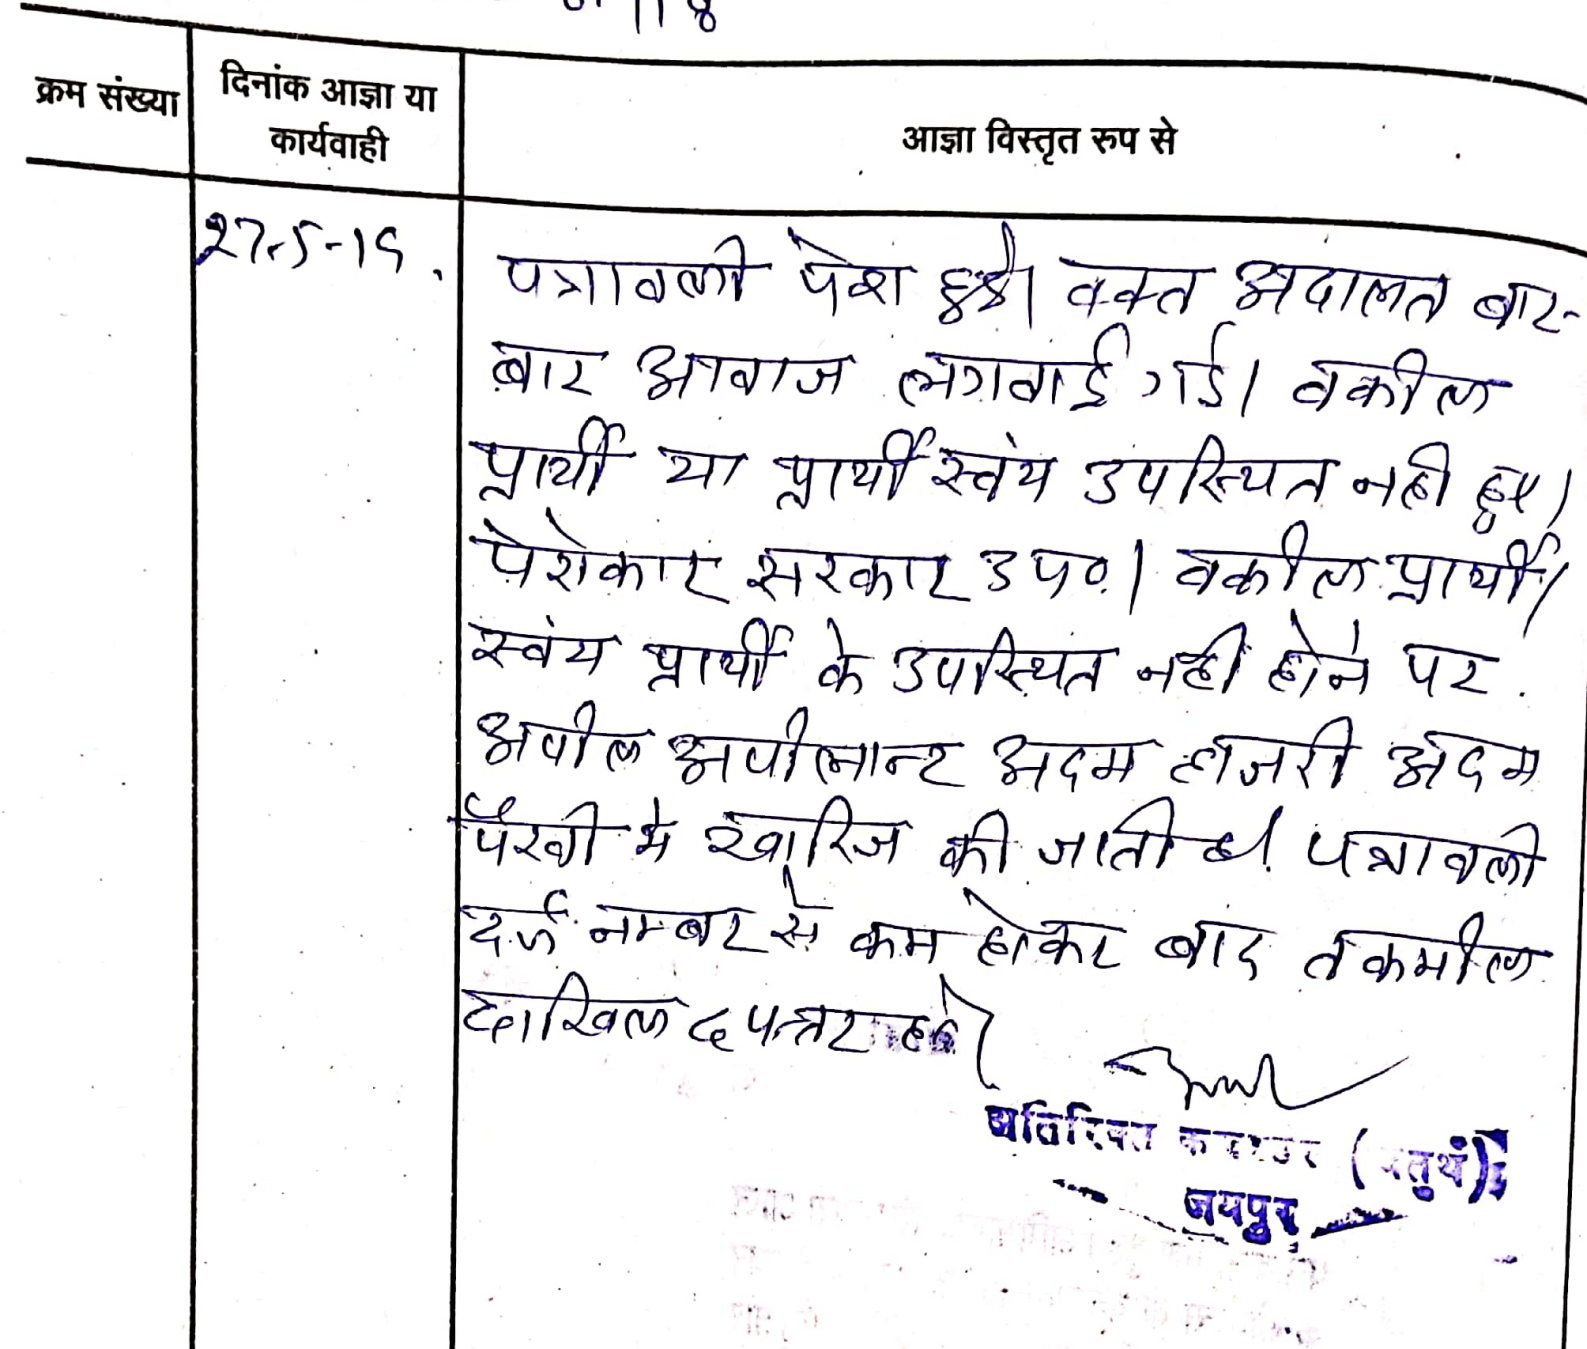 क्रम संख्या
दिनांक आज्ञा या
कार्यवाही
आज्ञा विस्तृत रुप से
27-5-19.
पत्रावली पेश हुई। वक्त अदालत बार-
बार आवाज लगवाई गई। वकील
प्रार्थी या प्रार्थी स्वंय उपस्थित नही हुए।
पेरोकार सरकार उप०। वकील प्रार्थी/
स्वंय प्रार्थी के उपस्थित नही होने पर
अपील अपीलान्ट अदम हाजरी अदम
पैरवी मे खारिज की जाती है। पत्रावली
दर्ज नम्बर से कम होकर बाद तकमील
दाखिल दफ्तर हो।
अतिरिक्त कलक्टर (चतुर्थ)
जयपुर